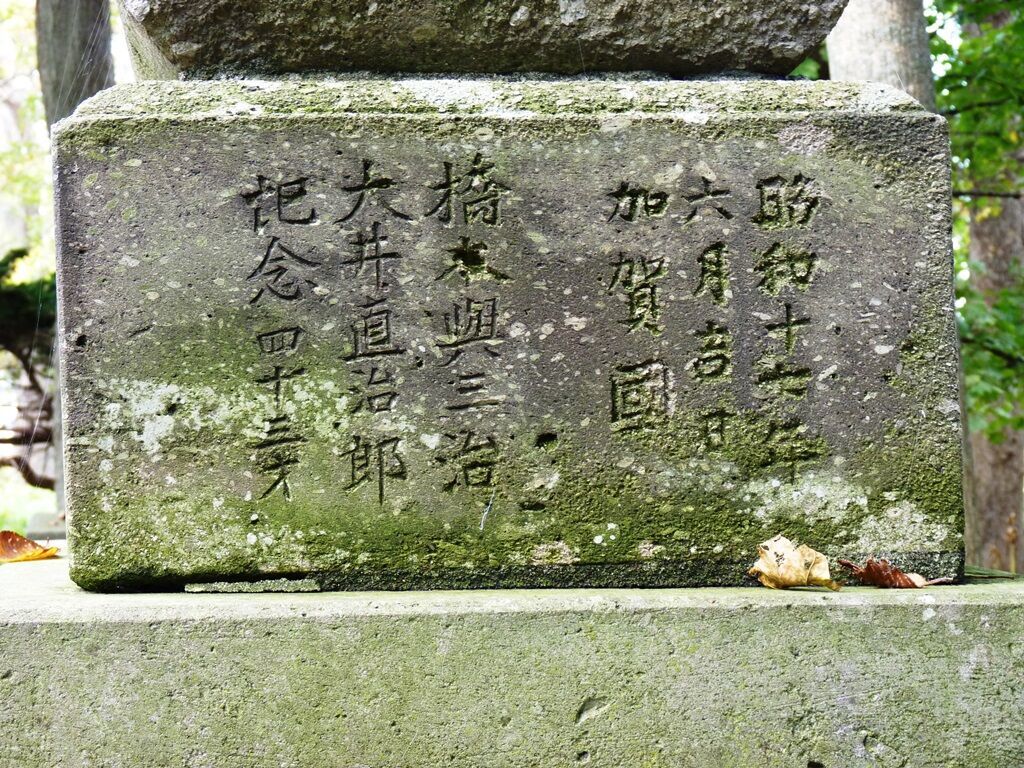 昭和十七年
六月吉日
加賀國
橋本與三治
大井直治郎
記念四十三才